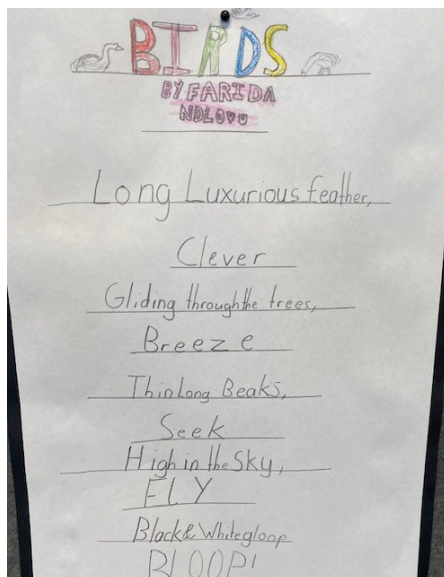 BIRDS
BY FARIDA
NDLOVU
Long Luxurious feather,
Clever
Gliding through the trees,
Breeze
Thin Long Beaks,
Seek
High in the Sky,
FLY
Black & White gloop
BLOOP!